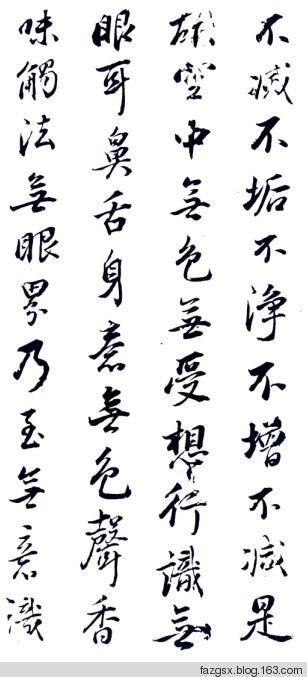 不滅不垢不淨不增不減是
故空中無色無受想行識無
眼耳鼻舌身意無色聲香
味觸法無眼界乃至無意識
fazgsx.blog.163.com